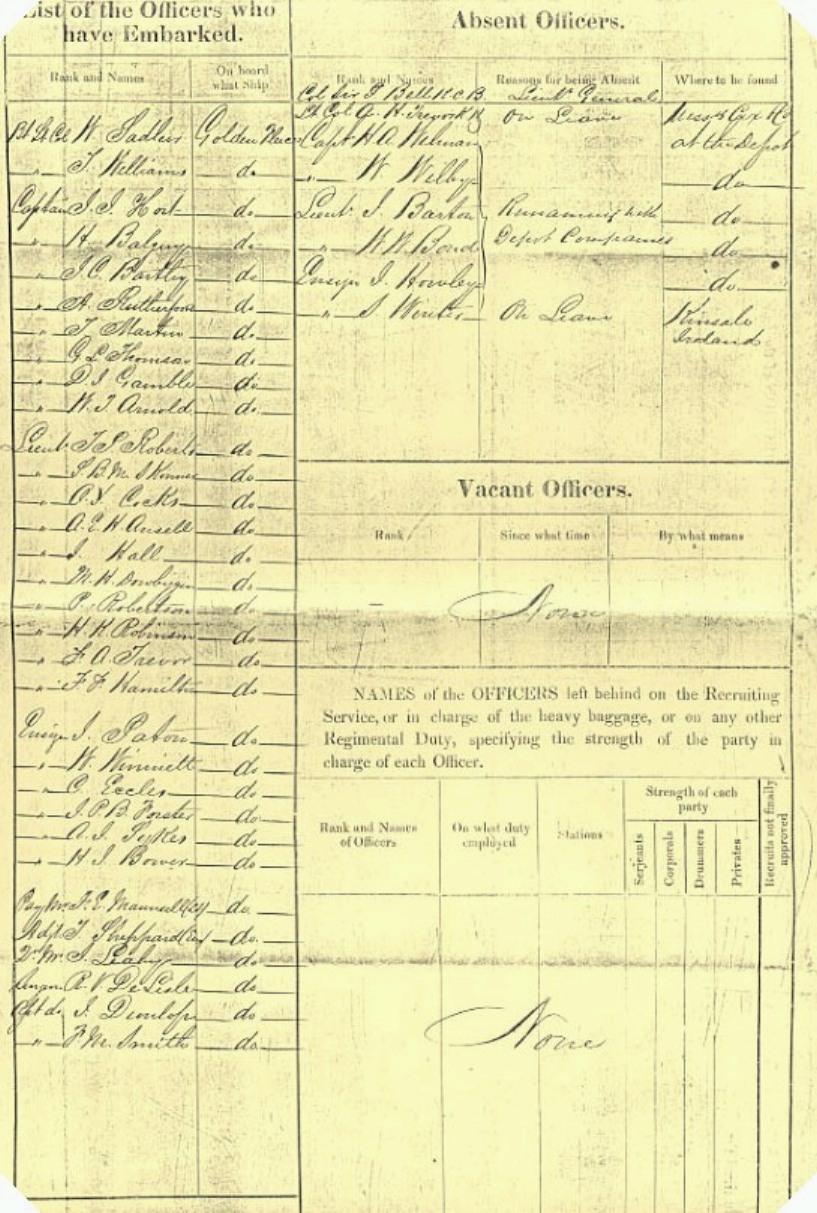 List of the Officers who
have Embarked.
Rank and Names
On board
what Ship
Bt Lt Col W. Sadlier Golden Fleece
" T. Williams do
Captain J. J. Hort do
" H. Balguy do
" J. C. Bartley do
" A. Rutherford do
" T. Martin do
" G. L. Thomson do
" D. J. Gamble do
" W. J. Arnold do
Lieut T. P. Roberts do
" S. B. M. Skinner do
" O. Y. Cocks do
" A. E. H. Ansell do
" J. Hall do
" M. H. Dowbiggin do
" P. Robertson do
" H. K. Robinson do
" F. A. Trevor do
" F. F. Hamilton do
Ensign J. Paton do
" W. Winnett do
" C. Eccles do
" J. P. B. Forster do
" A. J. Sykes do
" H. J. Bower do
Pay Mr F. E. Maunsell do
Adjt T. Sheppard do
Qr Mr J. Leahy do
Surgn R. V. De Lisle do
J. Dunlop do
" F. M. Smith do
Absent Officers.
Rank and Names
Reasons for being Absent
Where to be found
Col Sir J. Bell K C B Lieut General
Lt Col G. H. On Leave
Capt H. A. Welman at the Depot
" W Wilby do
Lieut J. Barton Remaining with do
" W. W. Bond Depot Companies do
Ensign J. Howley do
" S Winter On Leave Kinsale
Ireland
Vacant Officers.
Rank
Since what time
By what means
None
NAMES of the OFFICERS left behind on the Recruiting
Service, or in charge of the heavy baggage, or on any other
Regimental Duty, specifying the strength of the party in
charge of each Officer.
Rank and Names
of Officers
On what duty
employed
Stations
Strength of each
party
Serjeants
Corporals
Drummers
Privates
Recruits not finally
approved
None